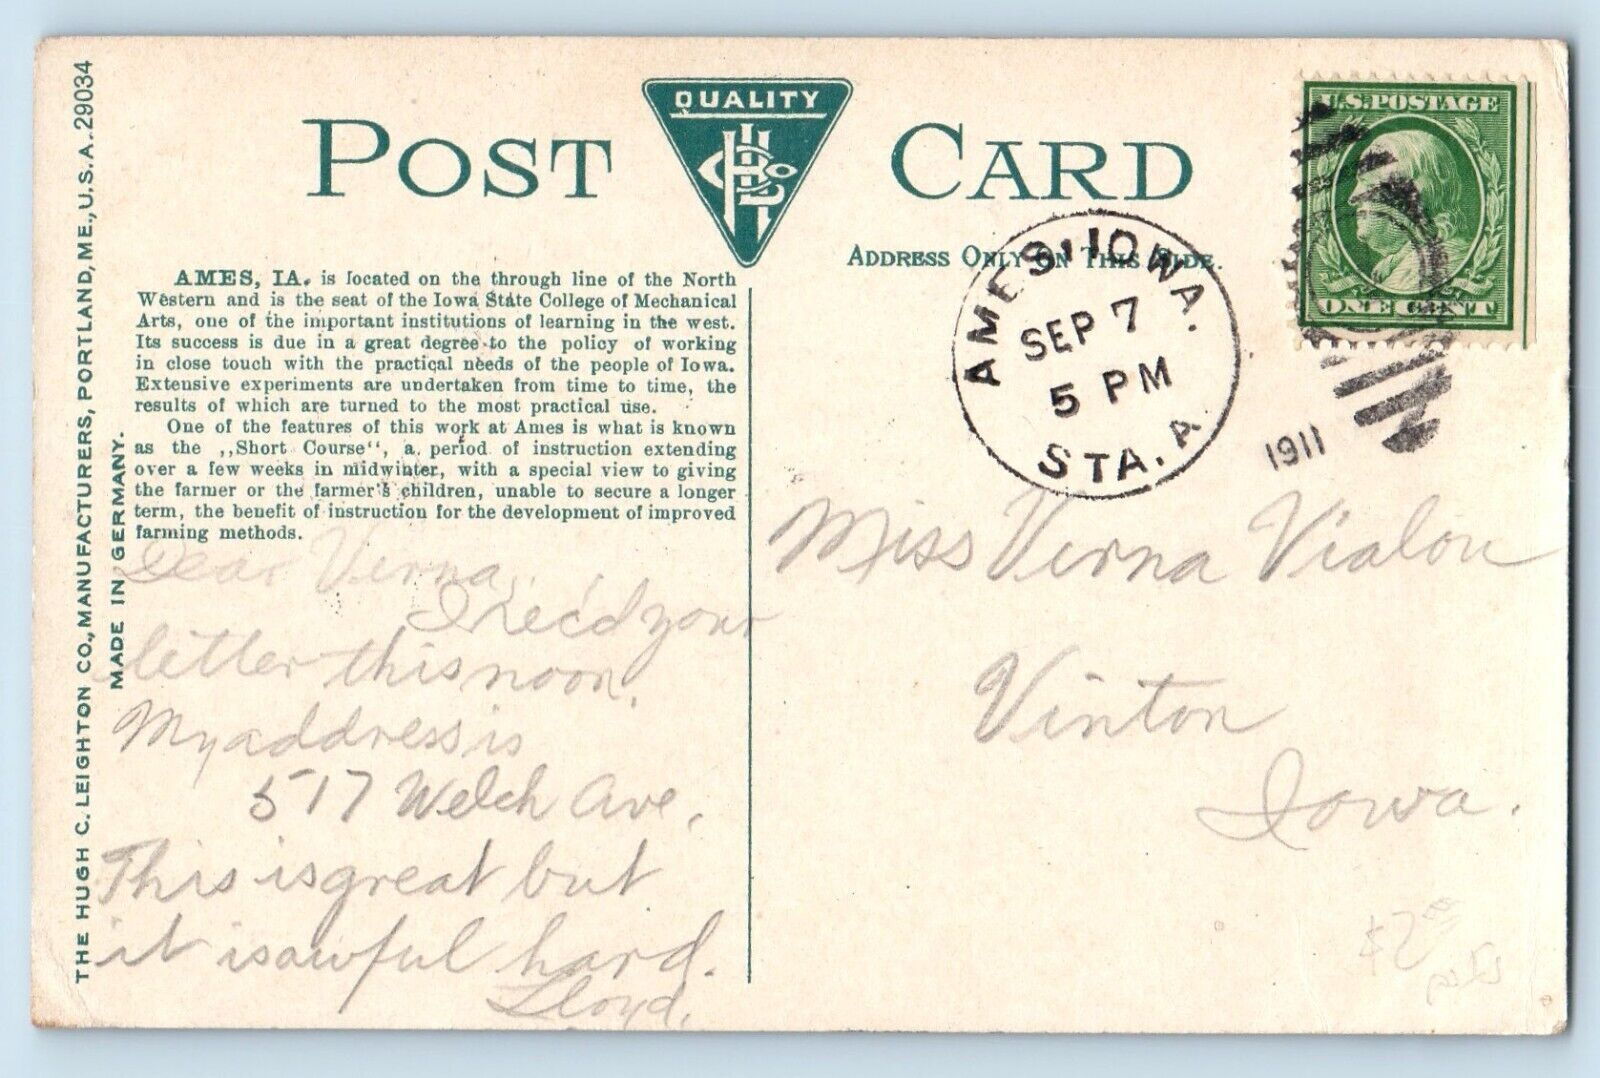 POST CARD
QUALITY
ADDRESS ONLY ON THIS SIDE.
U.S. POSTAGE
ONE CENT
AMES, IOWA.
SEP 7
5 PM
STA. A
1911
THE HUGH C. LEIGHTON CO., MANUFACTURERS, PORTLAND, ME., U.S.A. 29034
MADE IN GERMANY.
AMES, IA. is located on the through line of the North
Western and is the seat of the Iowa State College of Mechanical
Arts, one of the important institutions of learning in the west.
Its success is due in a great degree to the policy of working
in close touch with the practical needs of the people of Iowa.
Extensive experiments are undertaken from time to time, the
results of which are turned to the most practical use.
One of the features of this work at Ames is what is known
as the ,,Short Course“, a period of instruction extending
over a few weeks in midwinter, with a special view to giving
the farmer or the farmer's children, unable to secure a longer
term, the benefit of instruction for the development of improved
farming methods.
Dear Verna,
I rec'd your
letter this noon.
My address is
517 Welch Ave.
This is great but
it is awful hard.
Lloyd.
Miss Verna Vialou
Vinton
Iowa.
$2.00